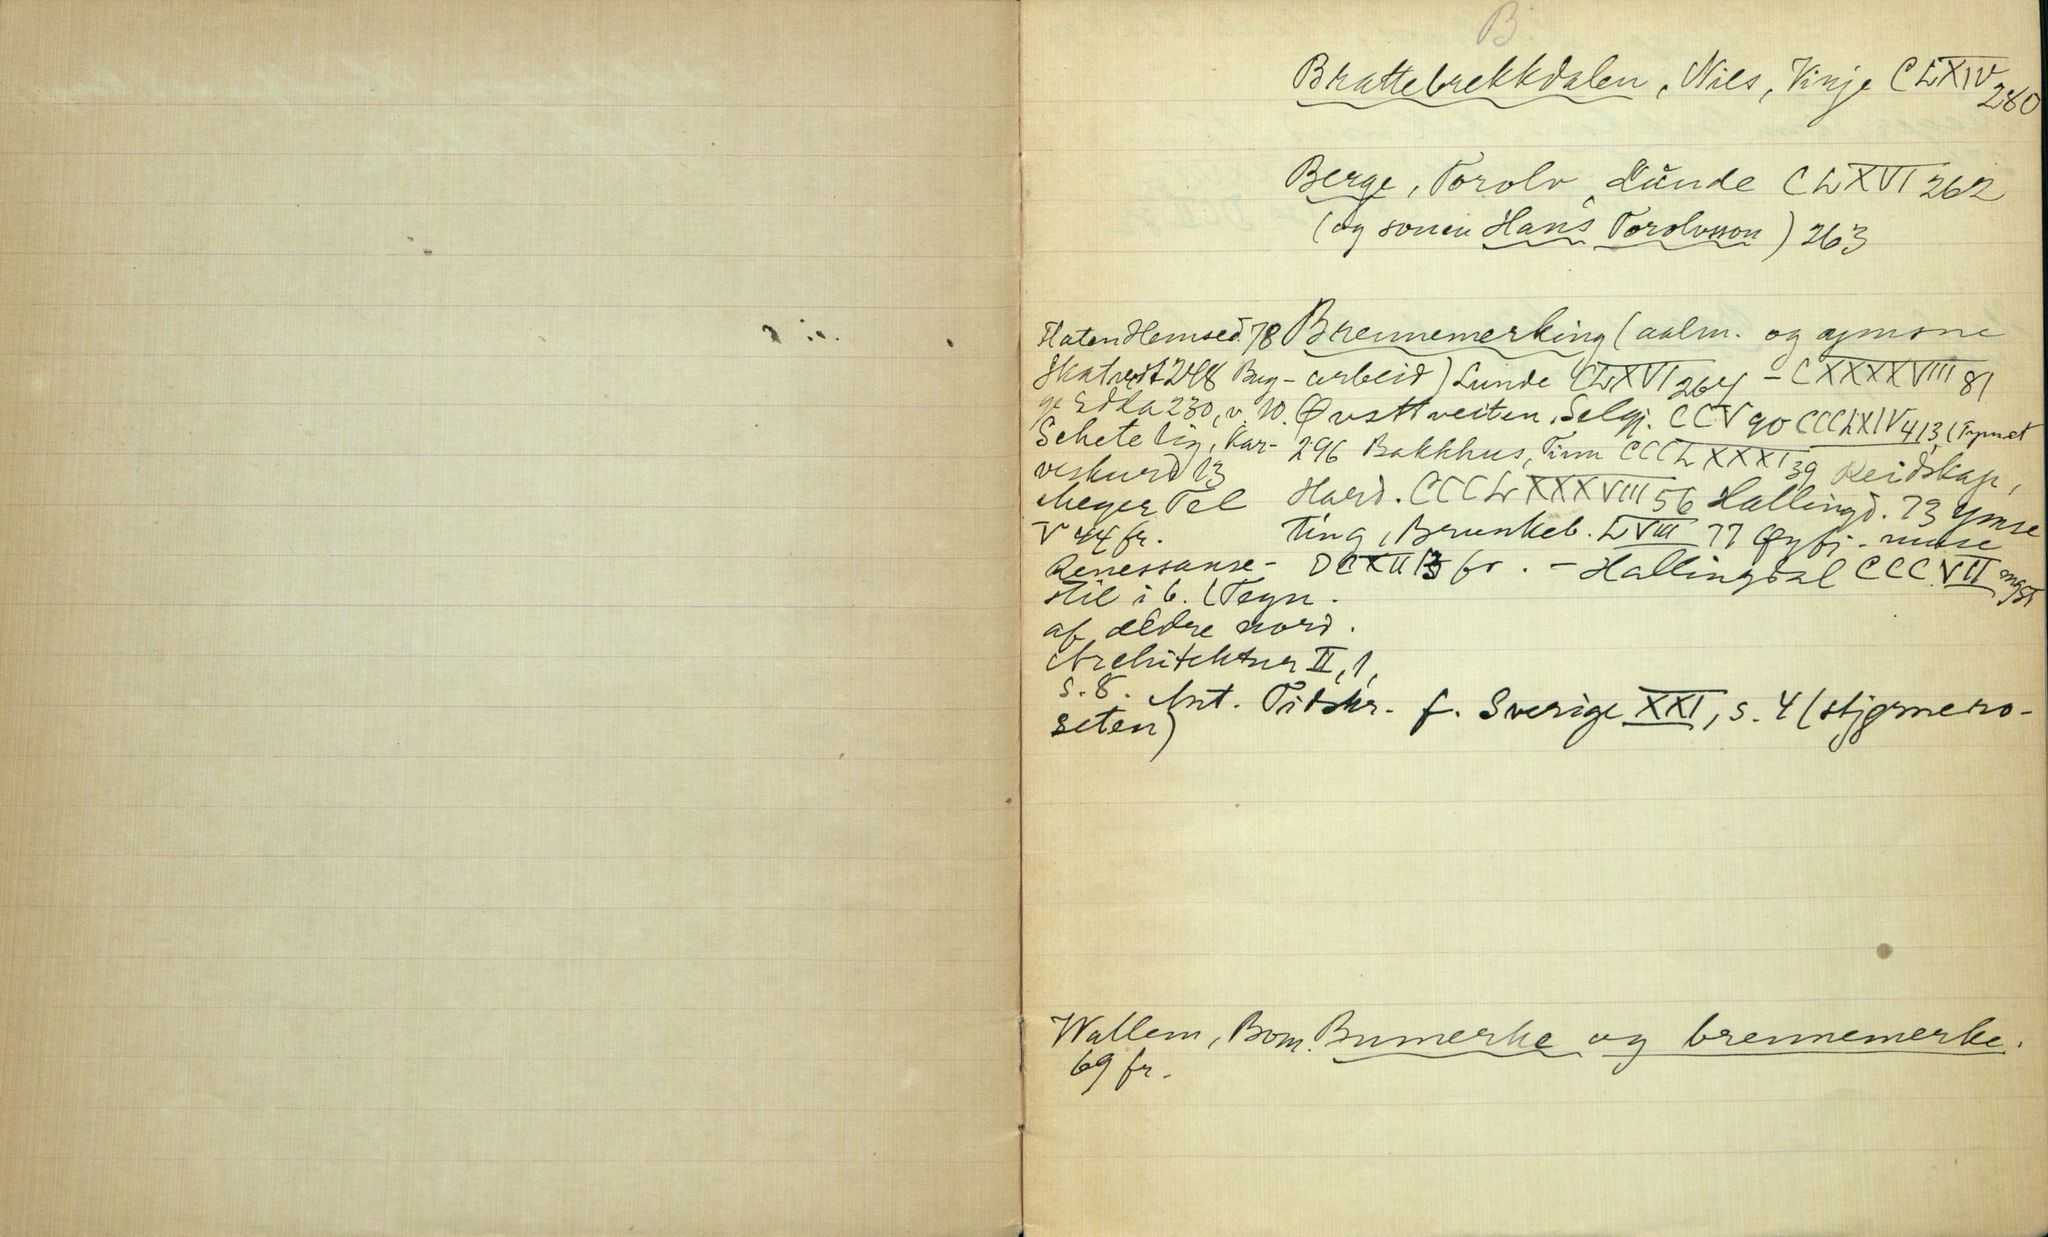 B.
Brattebrekkdalen, Nils, Vinje CLXIV 280
Berge, Torolv, Lunde CLXVI 262
(og sonen Hans Torolvsson) 263
Flaten Hemsed. 78 Brennemerking (aalm. og ymsne
Skatvedt 248 Byg-arbeid) Lunde CLXVI 264 - CXXXXVIII 81
Edda 230, v. 10. Øvsttveiten, Selgj. CCV 90 CCCLXIV 413,
Schetelig, Kar- 296 Bakkhus, Tinn CCCLXXXI 39 Reidskap,
veskurd 13
Meyer Tel Hard. CCCLXXXVIII 56 Hallingd. 73 ymse
V 44 fr. ting, Brunkeb. LVIII 77 Øyfj.
Renessanse- DCXII 13 fr. - Hallingdal CCCVII
stil i b. (Tegn.
af ældre nord.
Architektur II, 1,
s. 8. Ant. Tidskr. f. Sverige XXI, s. 4 (stjernero-
seten)
Wallem, Bom. Bumerke og brennemerke.
69 fr.